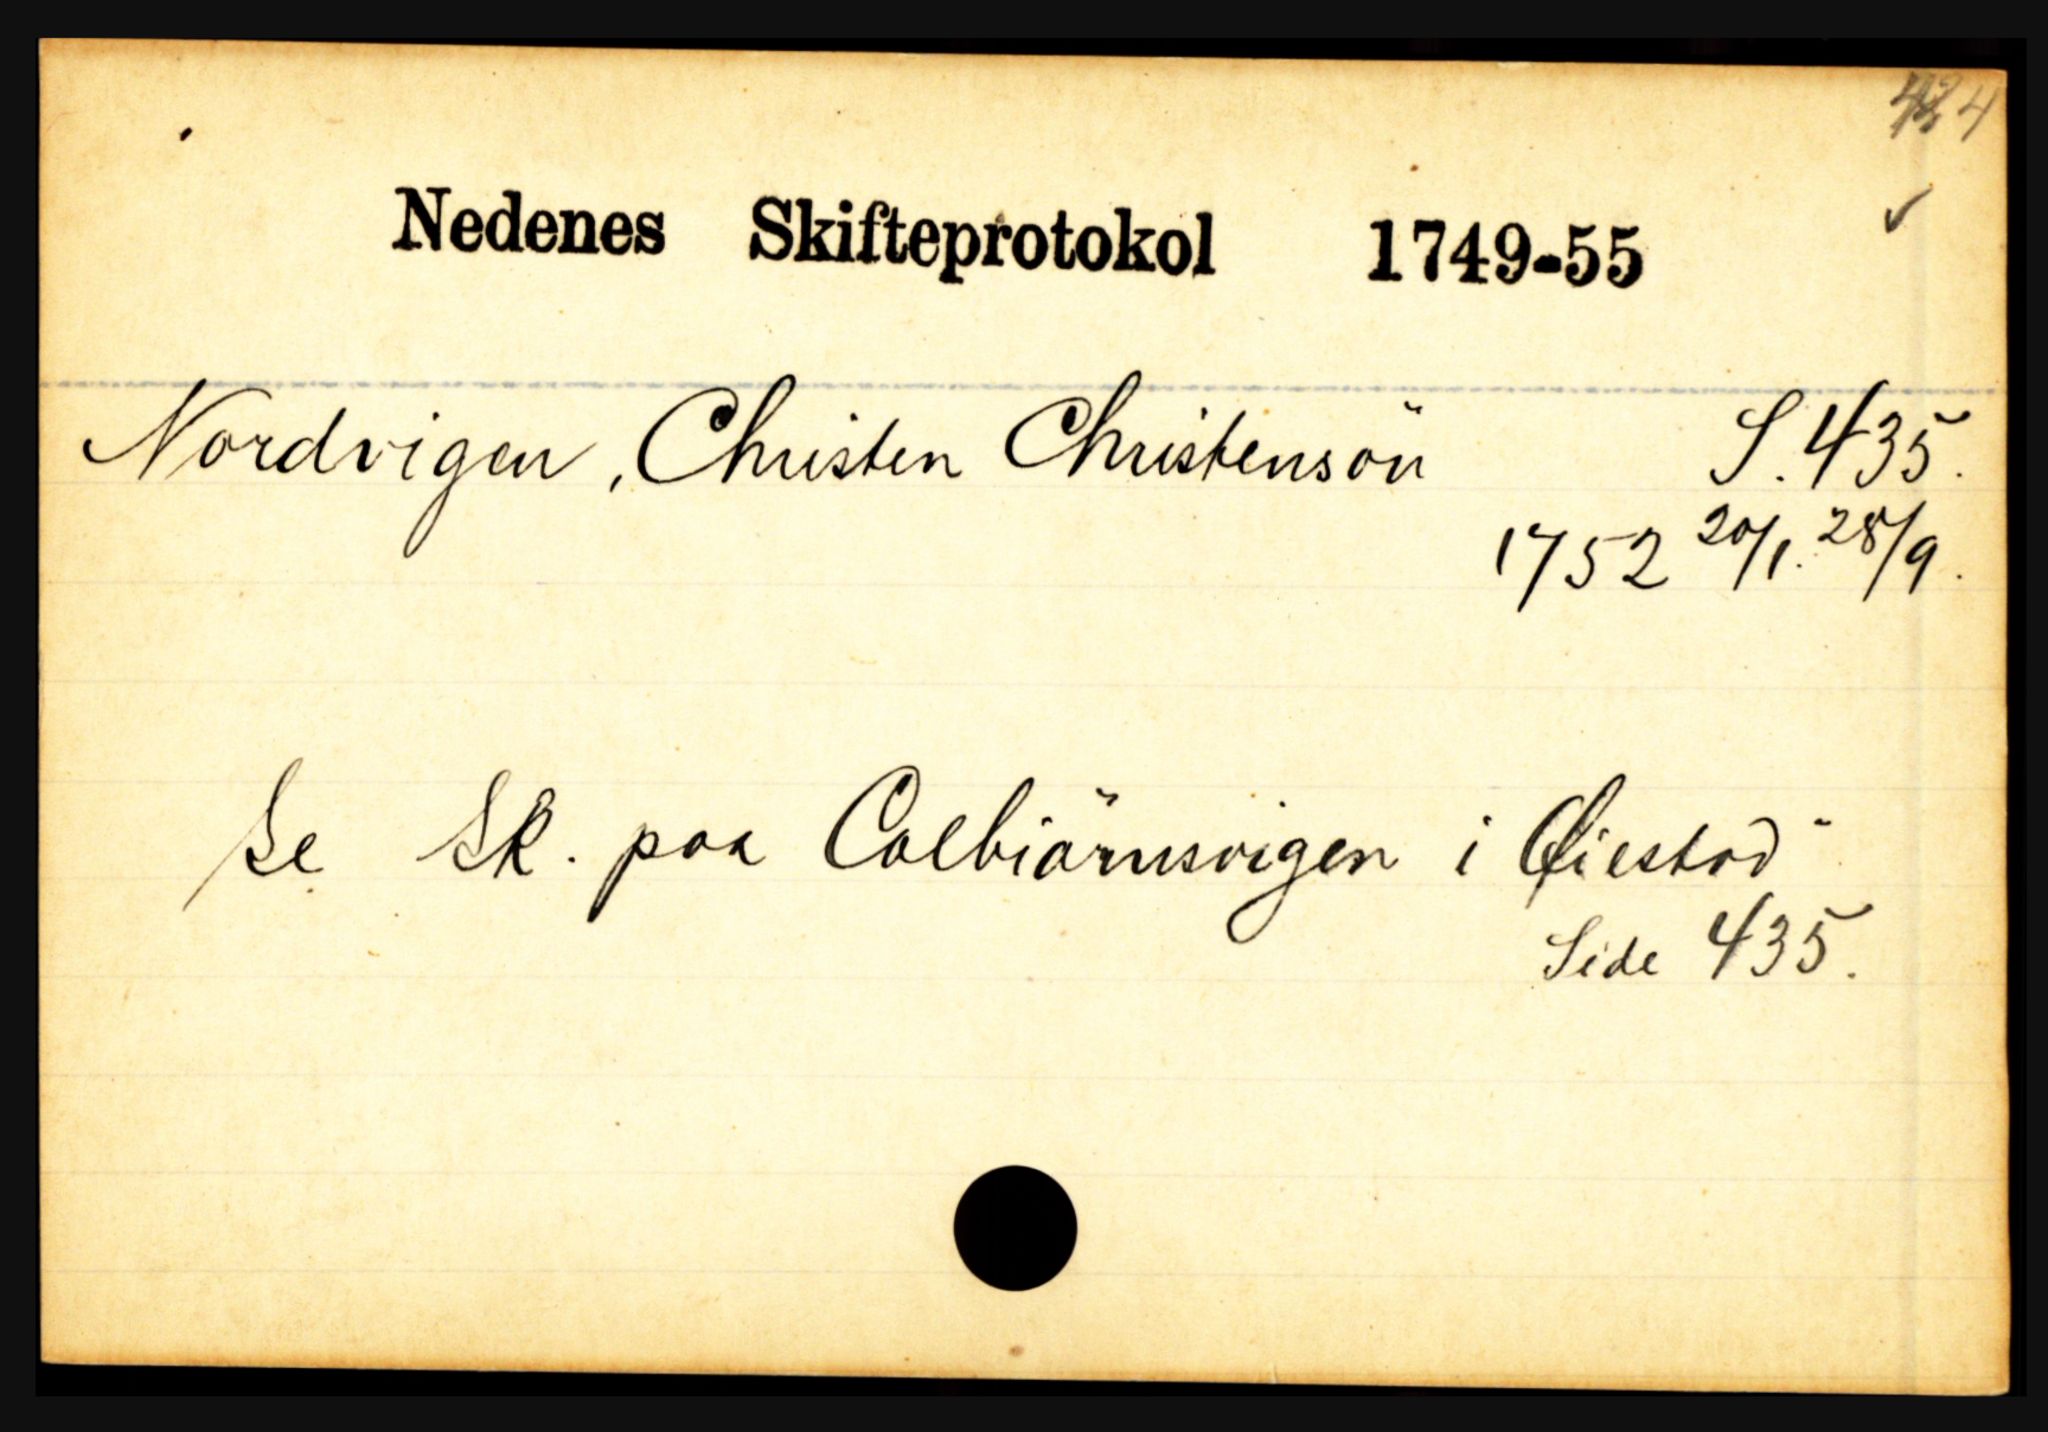 4
Nedenes Skifteprotokol 1749-55
Nordvigen, Christen Christensön S. 435.
1752 20/1. 28/9.
Se Sk. paa Colbiörnsvigen i Øiestad
Side 435.